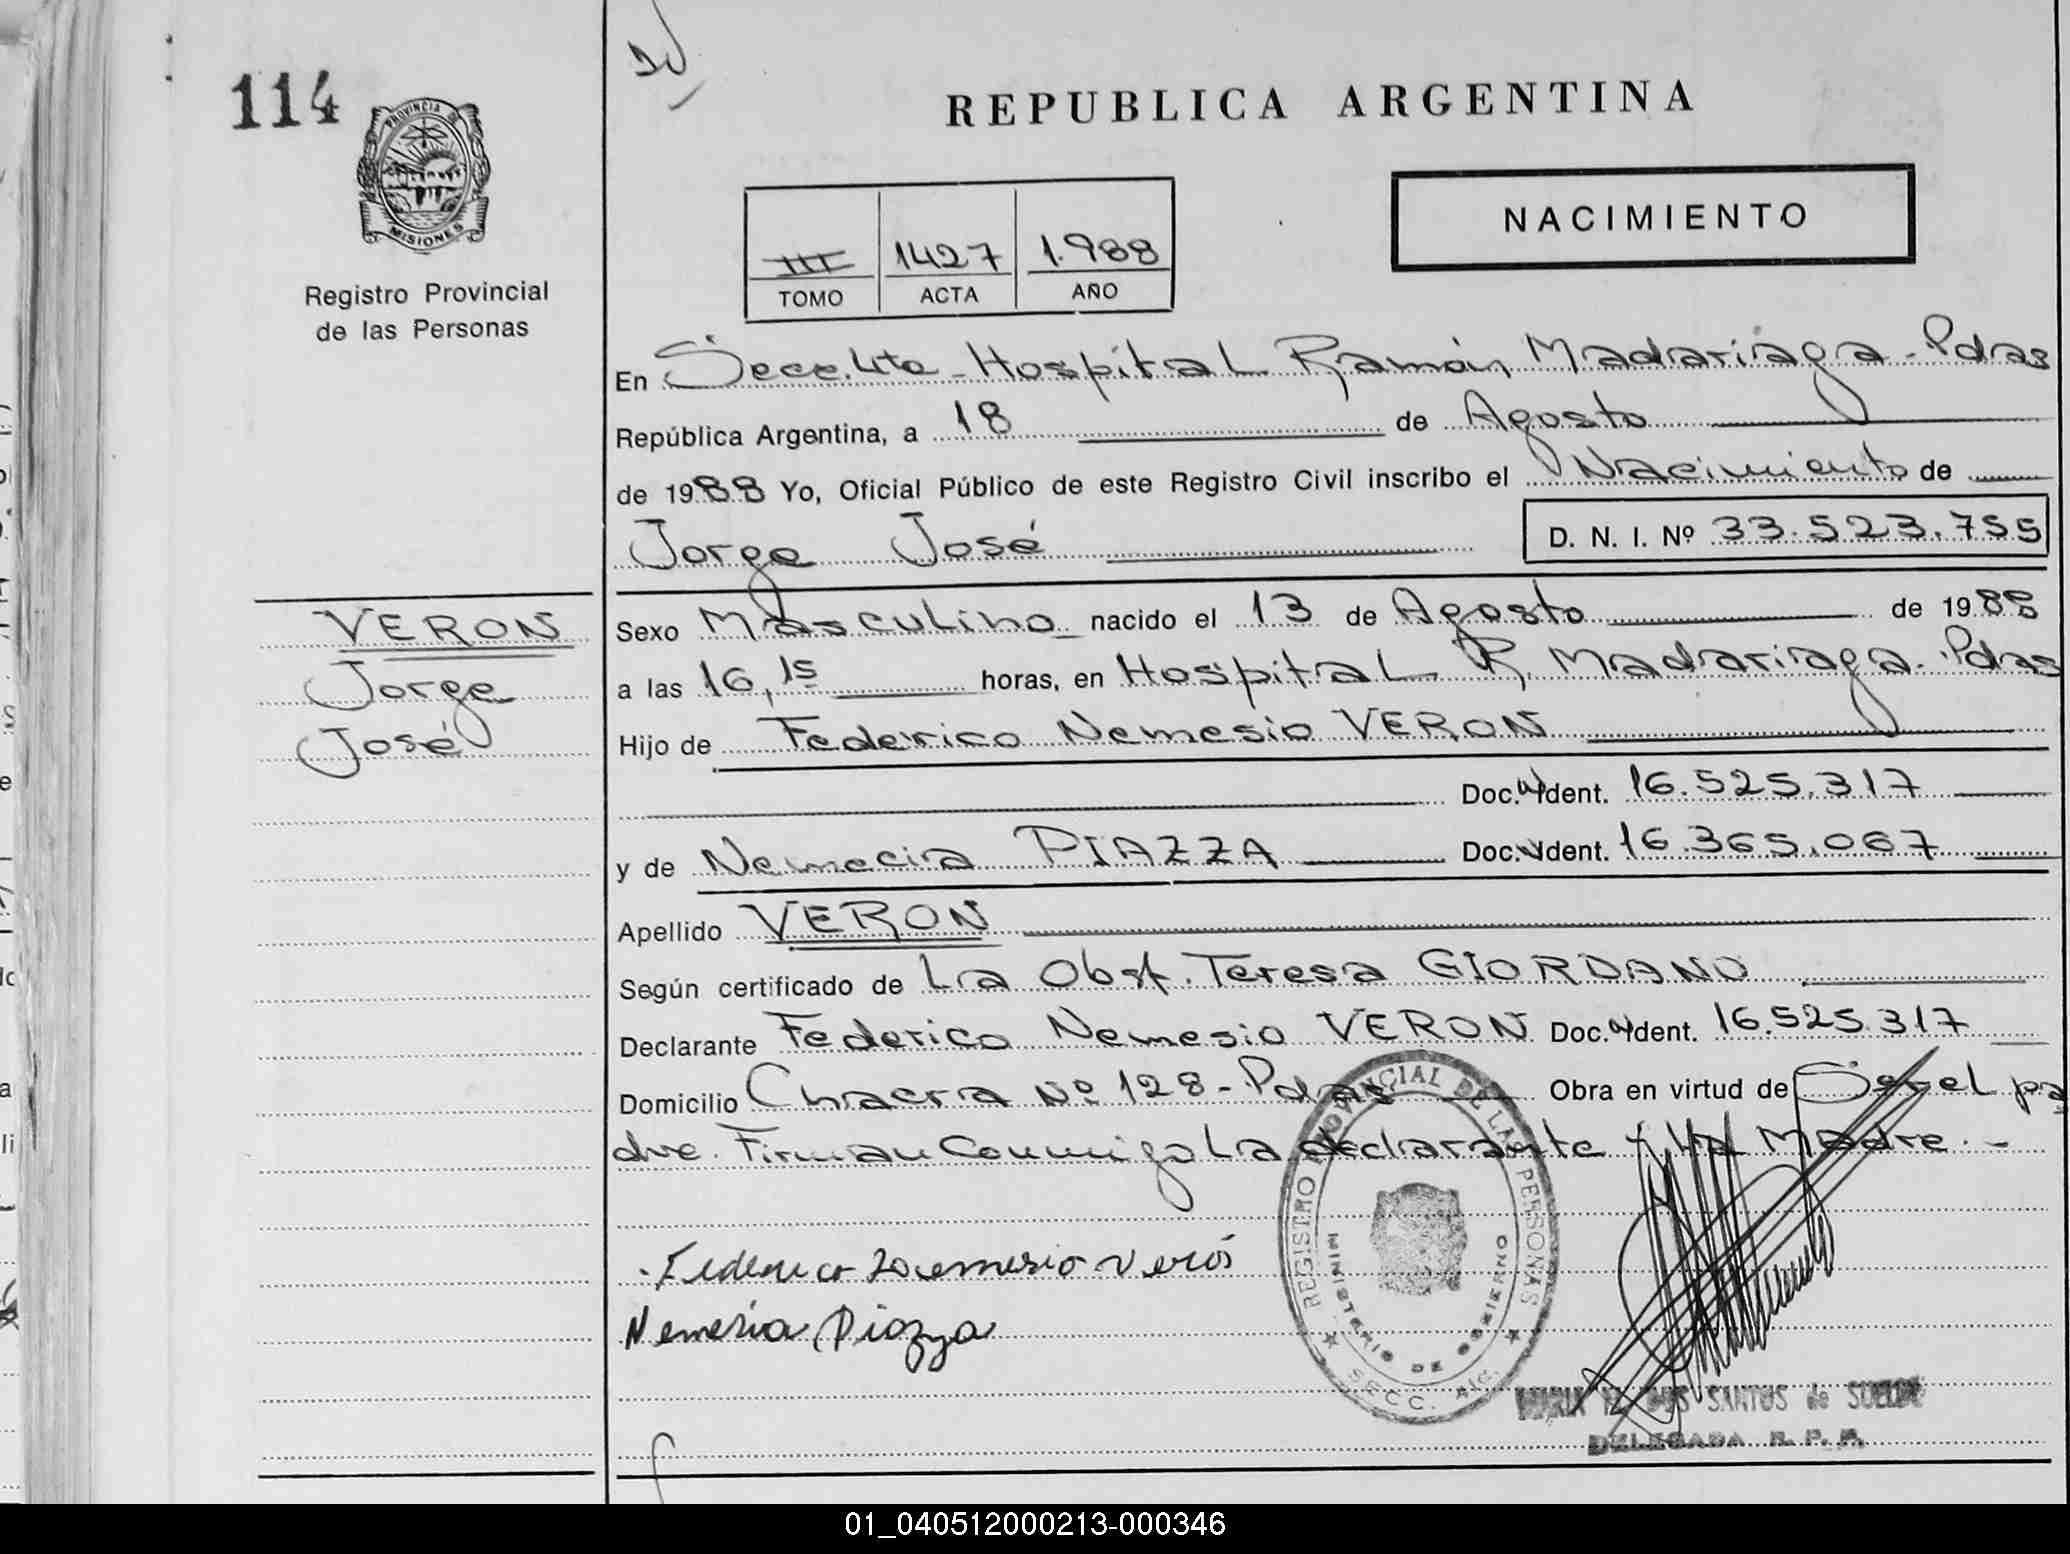 114
PROVINCIA DE
MISIONES
Registro Provincial
de las Personas
VERON
Jorge
José
REPUBLICA ARGENTINA
III 1427 1.988
TOMO ACTA AÑO
NACIMIENTO
En Secc. 4ta - Hospital Ramón Madariaga - Pdas
República Argentina, a 18 de Agosto
de 1988 Yo, Oficial Público de este Registro Civil inscribo el Nacimiento de
Jorge José D. N. I. Nº 33.523.755
Sexo Masculino nacido el 13 de Agosto de 1988
a las 16,15 horas, en Hospital R. Madariaga. Pdas
Hijo de Federico Nemesio VERON
Doc. Ident. 16.525.317
y de Nemecia PIAZZA Doc. Ident. 16.365.067
Apellido VERON
Según certificado de La Obst. Teresa GIORDANO
Declarante Federico Nemesio VERON Doc. Ident. 16.525.317
Domicilio Chacra Nº 128 - Pdas Obra en virtud de Ser el pa
dre. Firman Conmigo La declarante y La Madre. -
Federico Nemesio Verón
Nemesia Piazza
REGISTRO PROVINCIAL DE LAS PERSONAS
MINISTERIO DE GOBIERNO
SECC.
DOS SANTOS de
DELEGADA R. P. P.
01_040512000213-000346